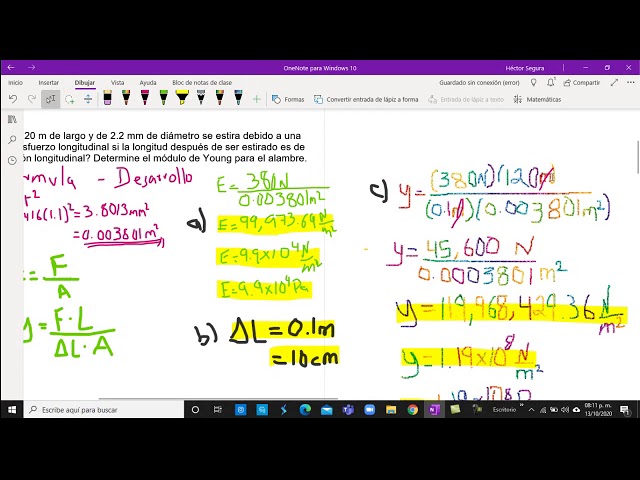 OneNote para Windows 10
Héctor Segura
Archivo Inicio Insertar Dibujar Vista Ayuda Bloc de notas de clase
Guardado sin conexión (error)
Compartir
Formas
Convertir entrada de lápiz a forma
Entrada de lápiz a texto
Matemáticas
20 m de largo y de 2.2 mm de diámetro se estira debido a una
sfuerzo longitudinal si la longitud después de ser estirado es de
ón longitudinal? Determine el módulo de Young para el alambre.
rmula - Desarollo
r²
416(1.1)² = 3.8013mm²
= 0.003801m²
= F/A
y = F·L/ΔL·A
a)
E = 380N/0.003801m²
E = 99,973.69 N/m²
E = 9.9x10⁴ N/m²
E = 9.9x10⁴ Pa
b) ΔL = 0.1m
= 10cm
c) y = (380N)(120m)/(0.1m)(0.003801m²)
y = 45,600 N/0.0003801m²
y = 119,968,429.36 N/m²
y = 1.19x10⁸ N/m²
Escribe aquí para buscar
Escritorio
08:11 p. m.
13/10/2020